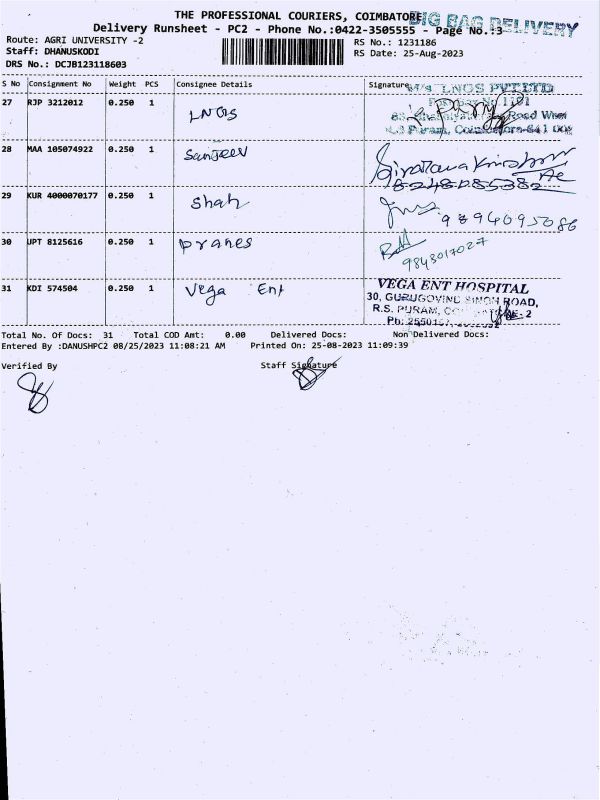 THE PROFESSIONAL COURIERS, COIMBATORE
BIG BAG DELIVERY
Delivery Runsheet - PC2 - Phone No.:0422-3505555 - Page No.:3
Route: AGRI UNIVERSITY -2
RS No.: 1231186
Staff: DHANUSKODI
RS Date: 25-Aug-2023
DRS No.: DCJB123118603
S No Consignment No Weight PCS Consignee Details Signature
27 RJP 3212012 0.250 1 LNOS
M/s LNOS PVT LTD
28 MAA 105074922 0.250 1 Sanjeev
29 KUR 4000070177 0.250 1 Shah 9894095086
30 UPT 8125616 0.250 1 pranes
9843017027
31 KDI 574504 0.250 1 Vega Ent
VEGA ENT HOSPITAL
30, GURUGOVIND SINGH ROAD,
R.S. PURAM,
Total No. Of Docs: 31 Total COD Amt: 0.00 Delivered Docs: Non Delivered Docs:
Entered By :DANUSHPC2 08/25/2023 11:08:21 AM Printed On: 25-08-2023 11:09:39
Verified By Staff Signature